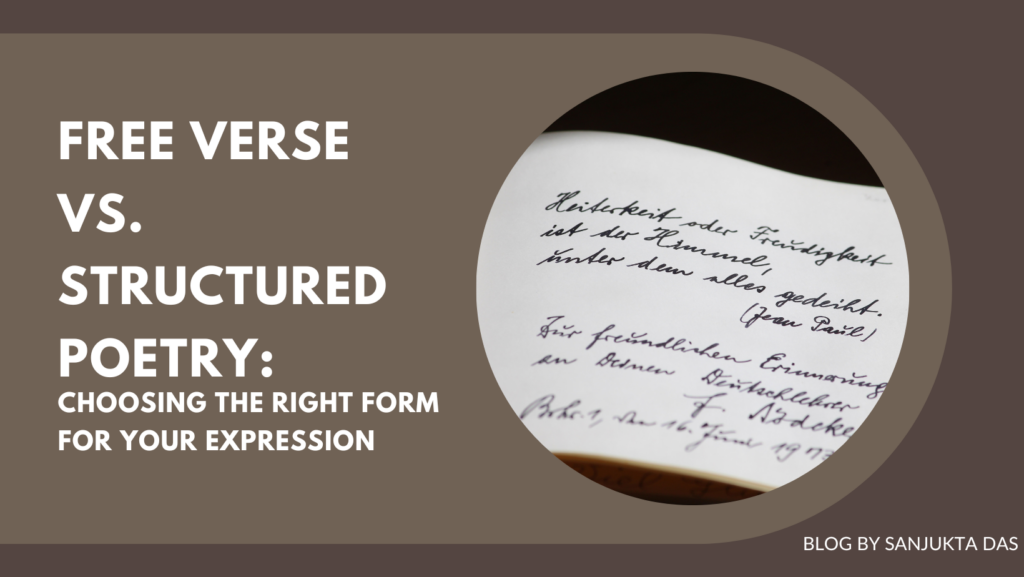 FREE VERSE
VS.
STRUCTURED
POETRY:
CHOOSING THE RIGHT FORM
FOR YOUR EXPRESSION
Heiterkeit oder Freudigkeit
ist der Himmel,
unter dem alles gedeiht.
(Jean Paul)
Zur freundlichen Erinnerung
an Deinen Deutschlehrer
den 16. Juni
BLOG BY SANJUKTA DAS